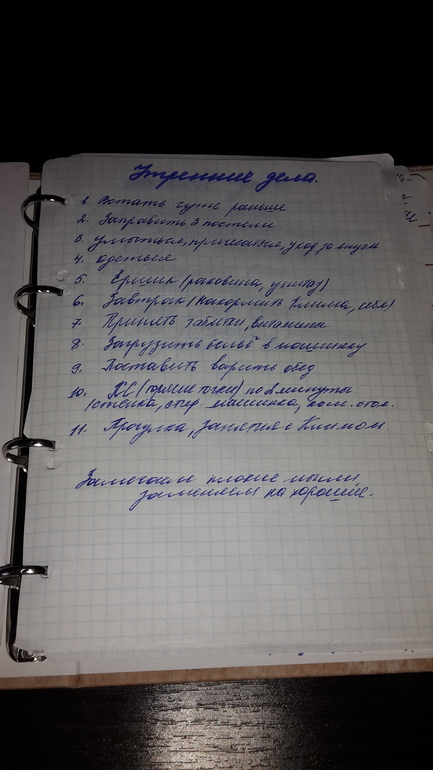 Утренние дела.
1. Встать чуть раньше
2. Заправить 3 постели
3. умыться, причесаться, уход за лицом
4. одеться
5. Ёршик (раковина, унитаз)
6. Завтрак (накормить Клима, себя)
7. Принять таблетки, витамины
8. Загрузить бельё в машинку
9. Поставить варить обед
10. (горячие точки) по 2 минуты
/стенка, стир. машинка, ком. стол.
11. Прогулка, занятия с Климом
Замечаем плохие мысли,
заменяем на хорошие.